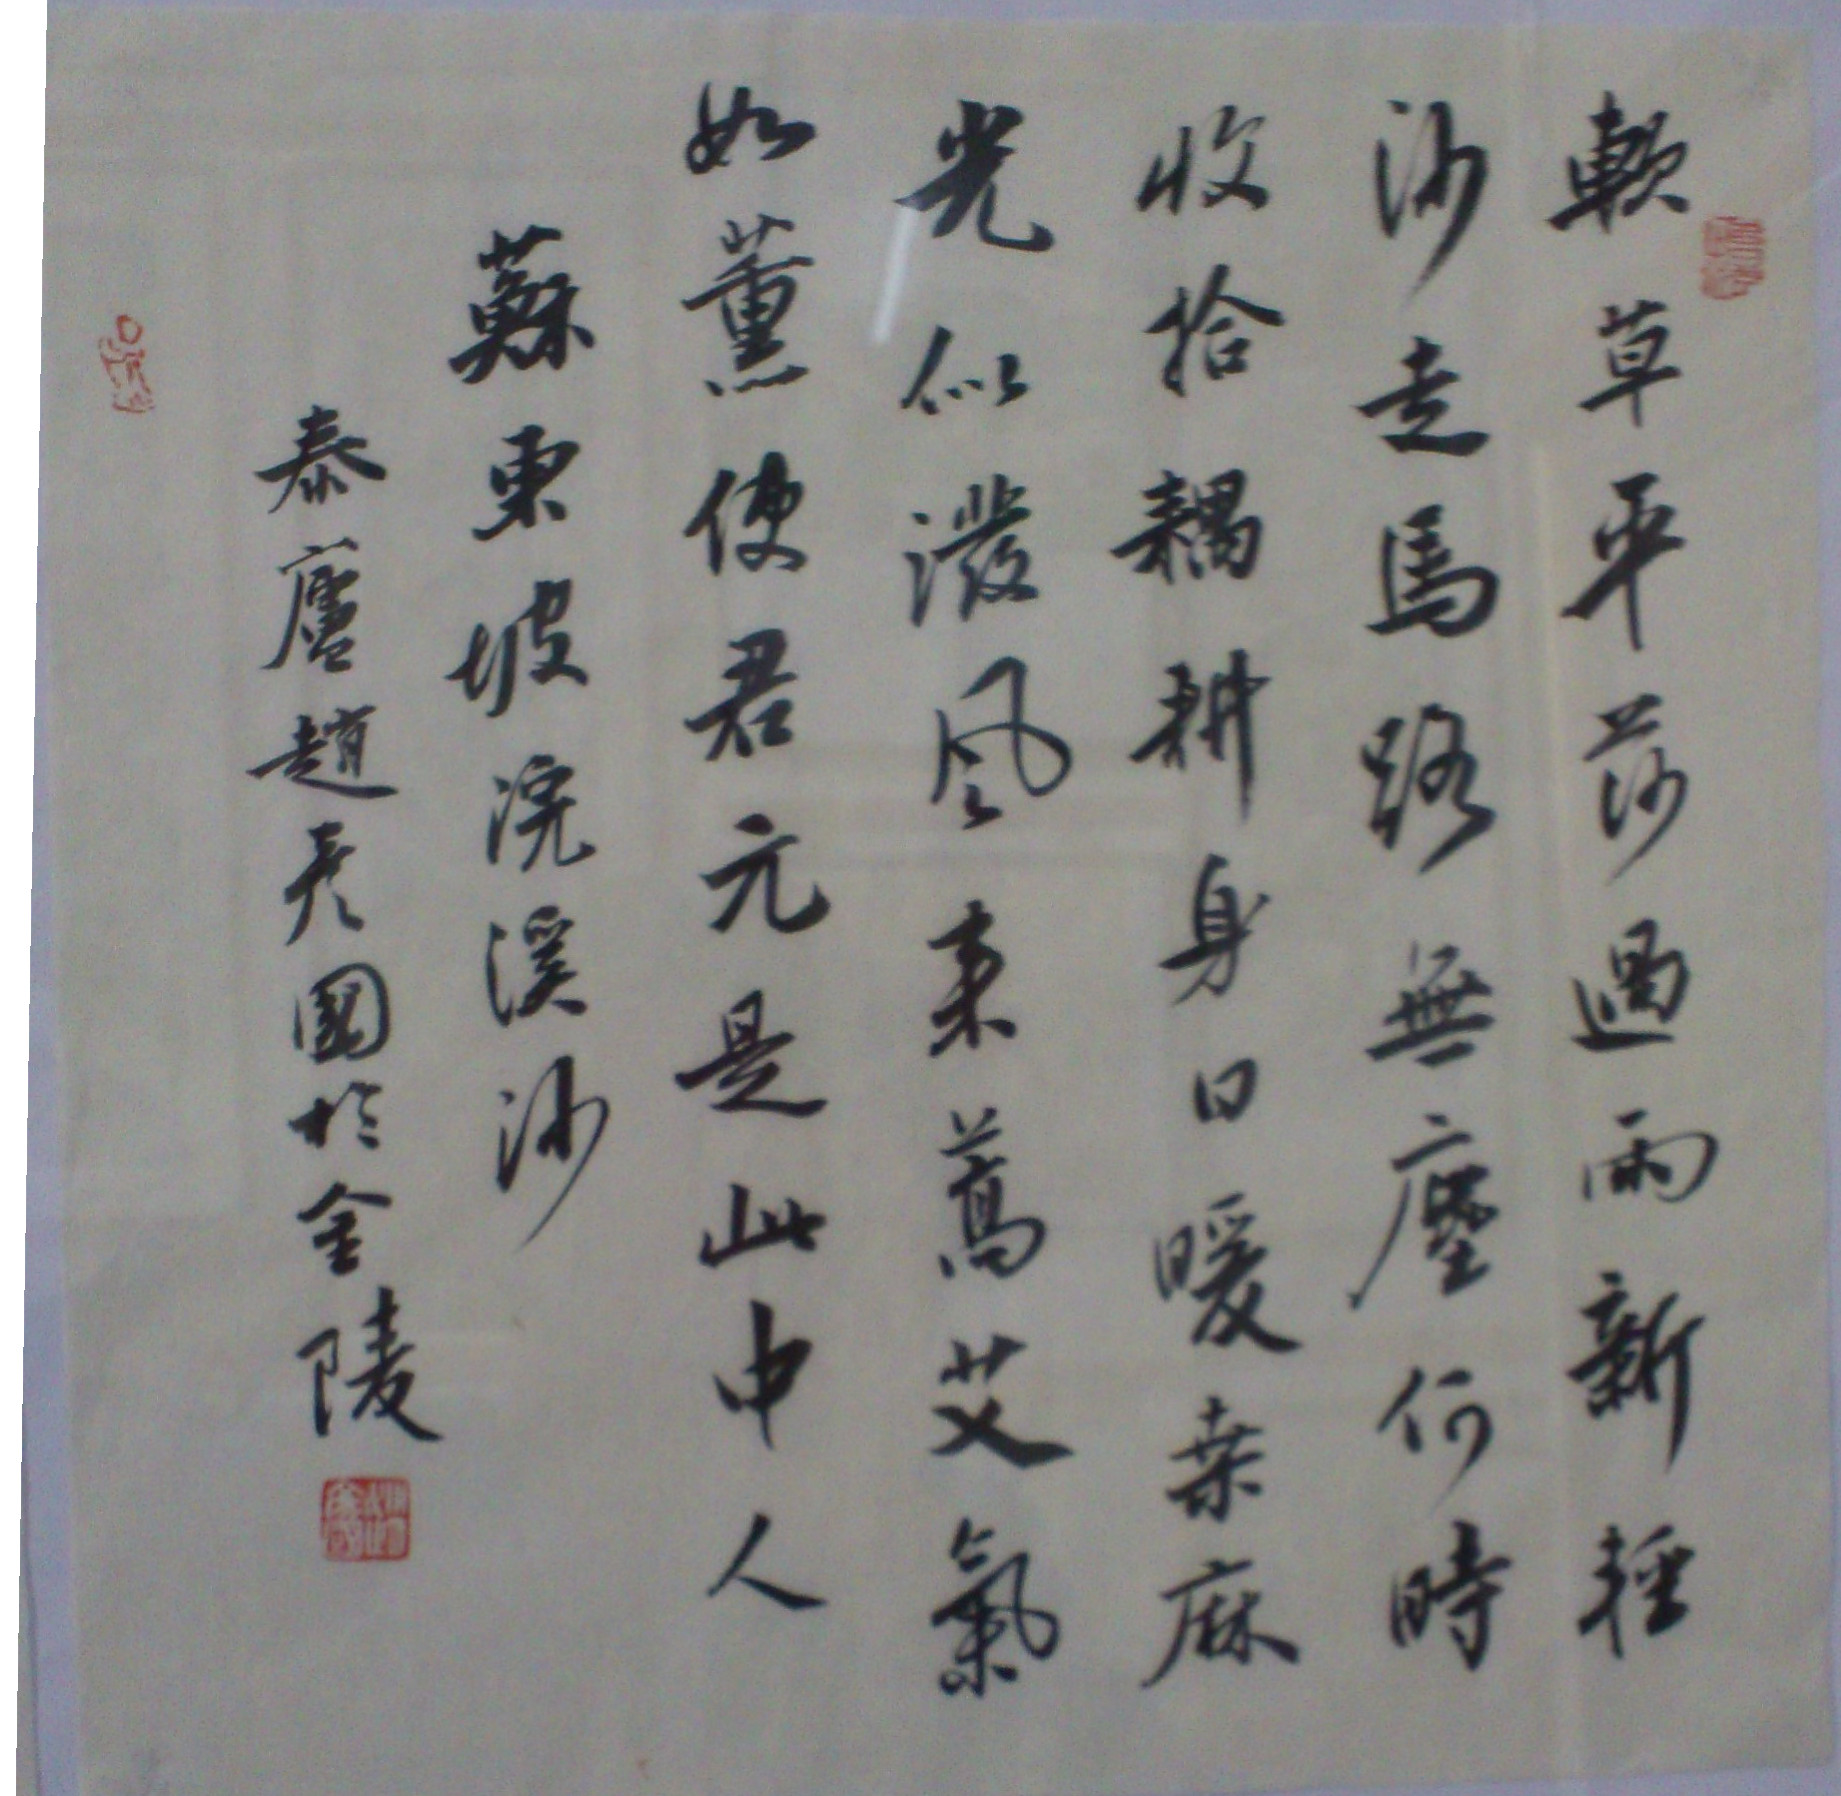 軟草平莎過雨新輕
沙走馬路無塵何時
收拾耦耕身日暖桑麻
光似潑風來蒿艾氣
如薰使君元是此中人
蘇東坡浣溪沙
泰廬趙 國於金陵